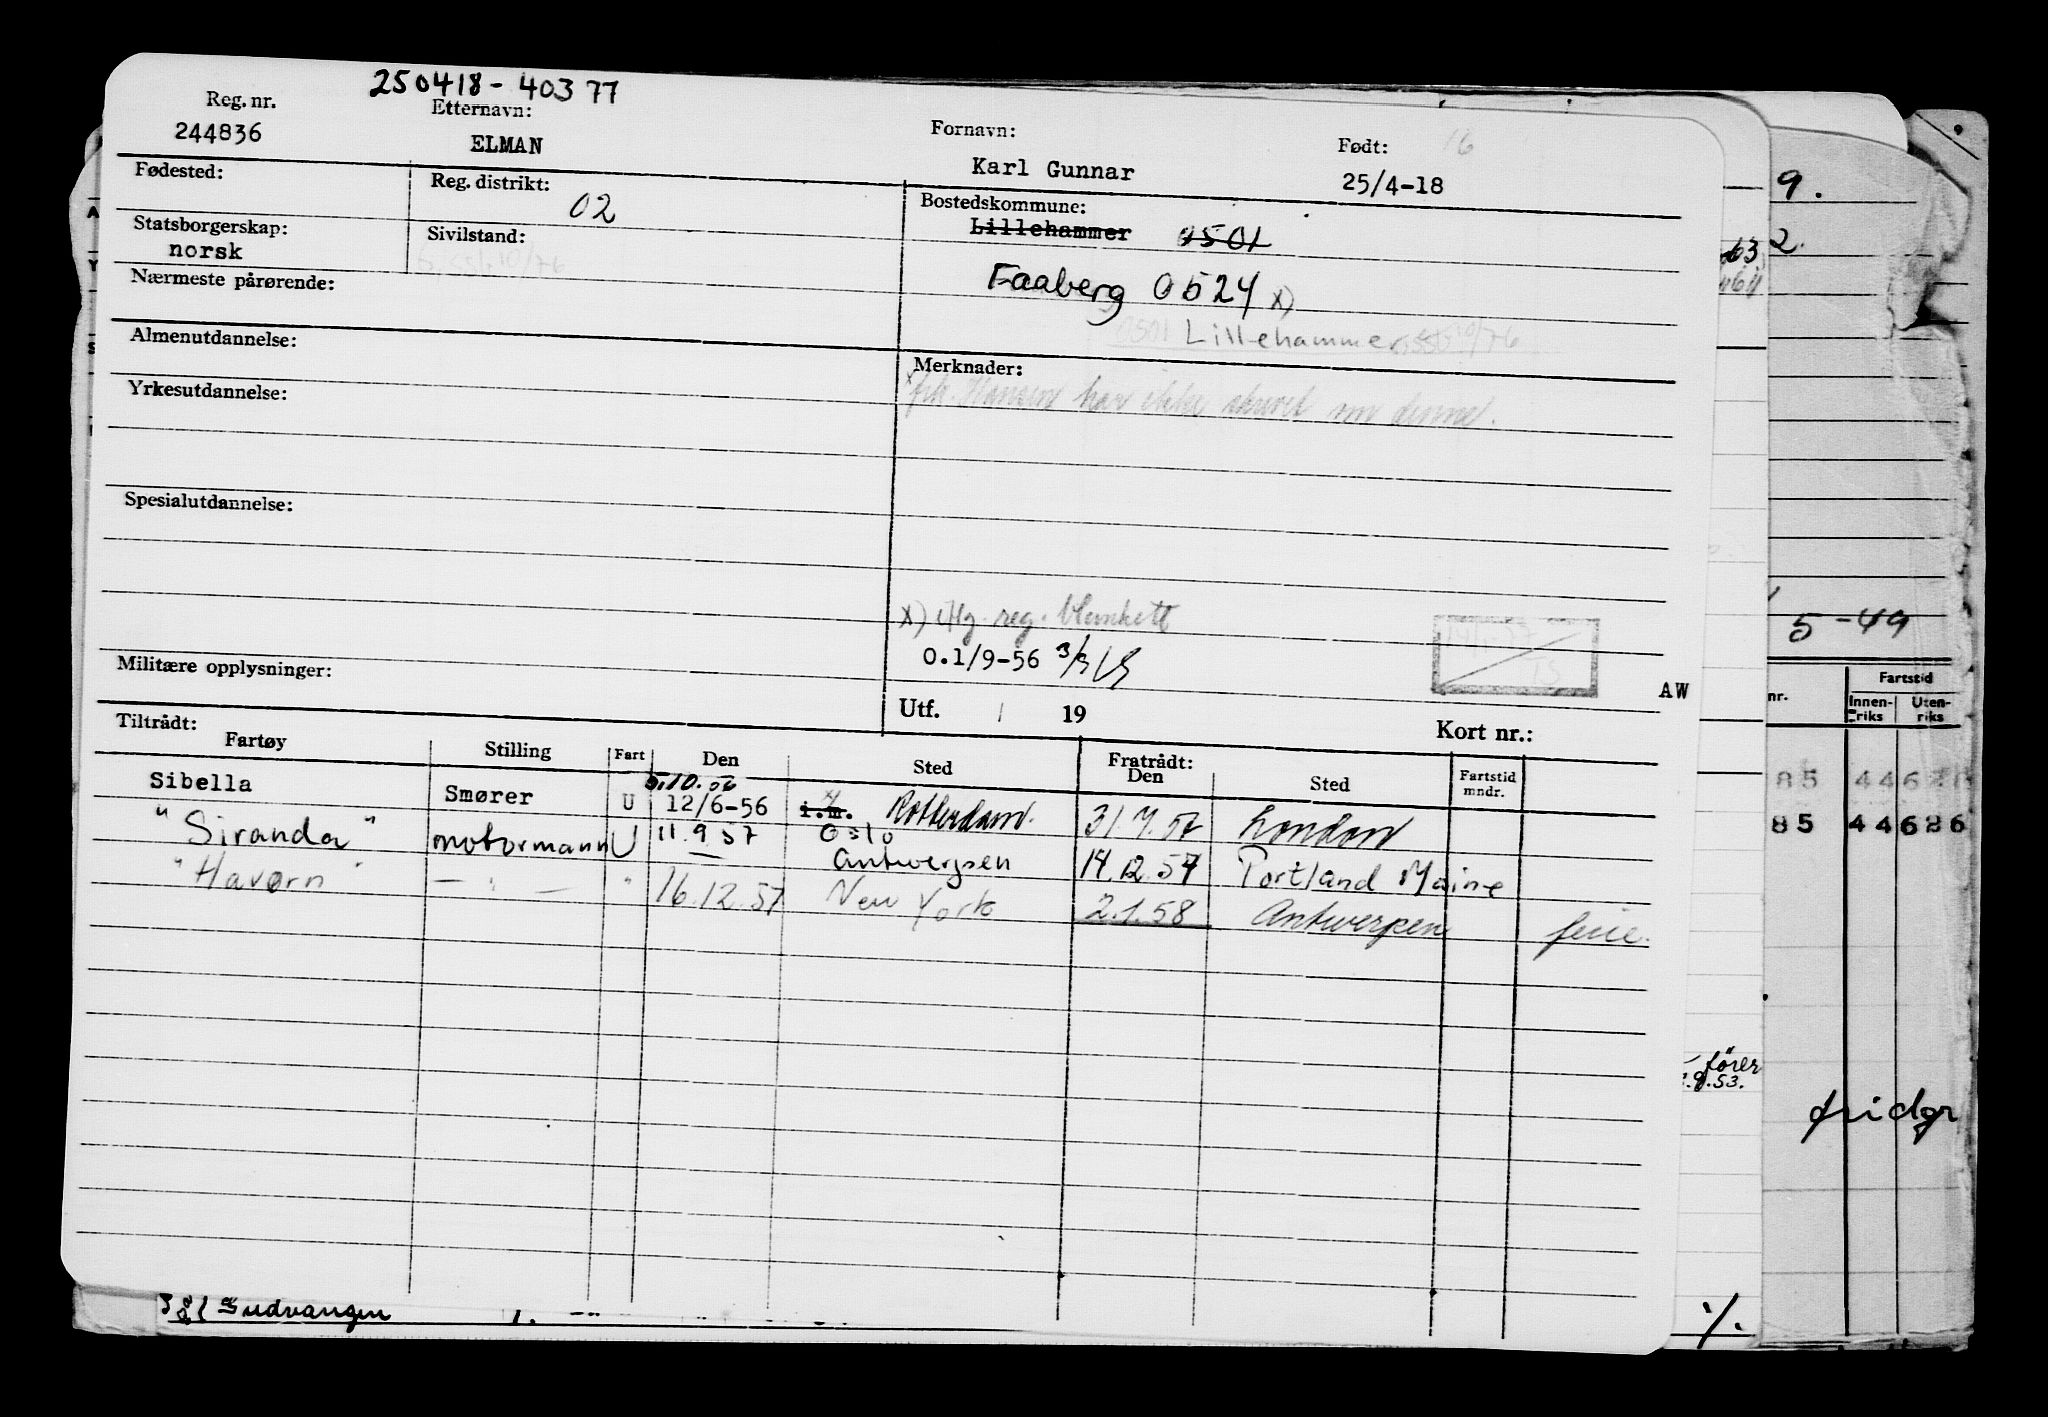 250418-40377
Reg. nr. Etternavn: Fornavn: Født: 16
244836 ELMAN Karl Gunnar 25/4-18
Fødested: Reg. distrikt: 02 Bostedskommune:
Lillehammer 0501
Statsborgerskap: Sivilstand:
norsk
Faaberg 0524 x)
Nærmeste pårørende:
0501 Lillehammer 10/76
Almenutdannelse: Merknader:
Hansen har ikke skrevet om denne.
Yrkesutdannelse:
Spesialutdannelse:
x) iflg. reg. blankett
O.1/9-56
Militære opplysninger:
AW
Utf. / 19 Kort nr.:
Tiltrådt: Fratrådt:
Fartøy Stilling Fart Den Sted Den Sted Fartstid mndr.
5.10.56
Sibella Smører U 12/6-56 i.m. Rotterdam. 31.7.57 London
"Siranda" motormann U 11.9.57 Oslo
Antwerpen 14.12.57 Portland Maine
"Havørn" — " — " 16.12.57 New York 2.1.58 Antwerpen ferie.
Gudvangen
9.
2.
63
5-49
nr. Fartstid
Innen-riks Uten-riks
85 44626
85 44626
fører
9.53.